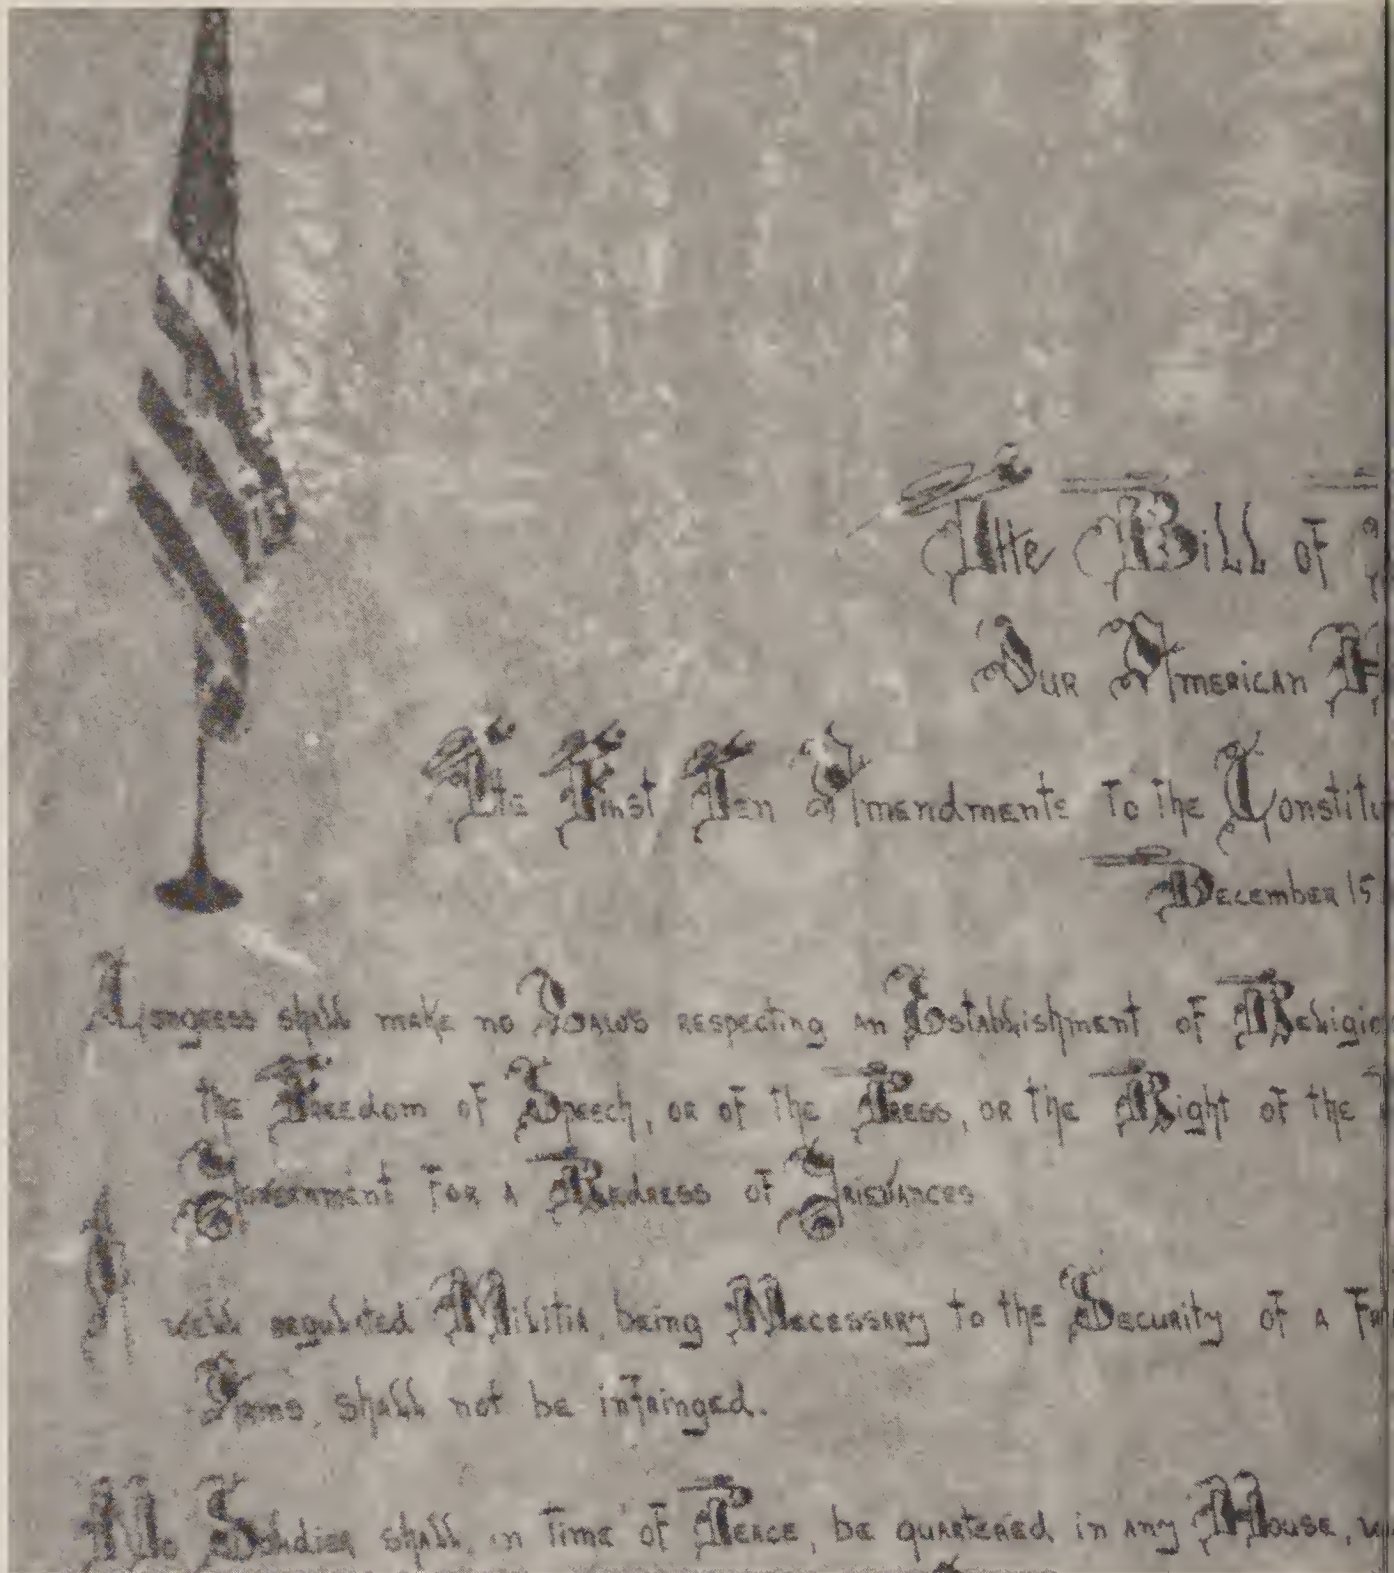 The Bill of
Our American
The First Ten Amendments to the Constitu
December 15
Congress shall make no Laws respecting an Establishment of Religio
the Freedom of Speech, or of the Press, or the Right of the
Government for a Redress of Grievances
A well regulated Militia, being Necessary to the Security of a Fr
Arms, shall not be infringed.
No Soldier shall, in Time of Peace, be quartered in any House, w